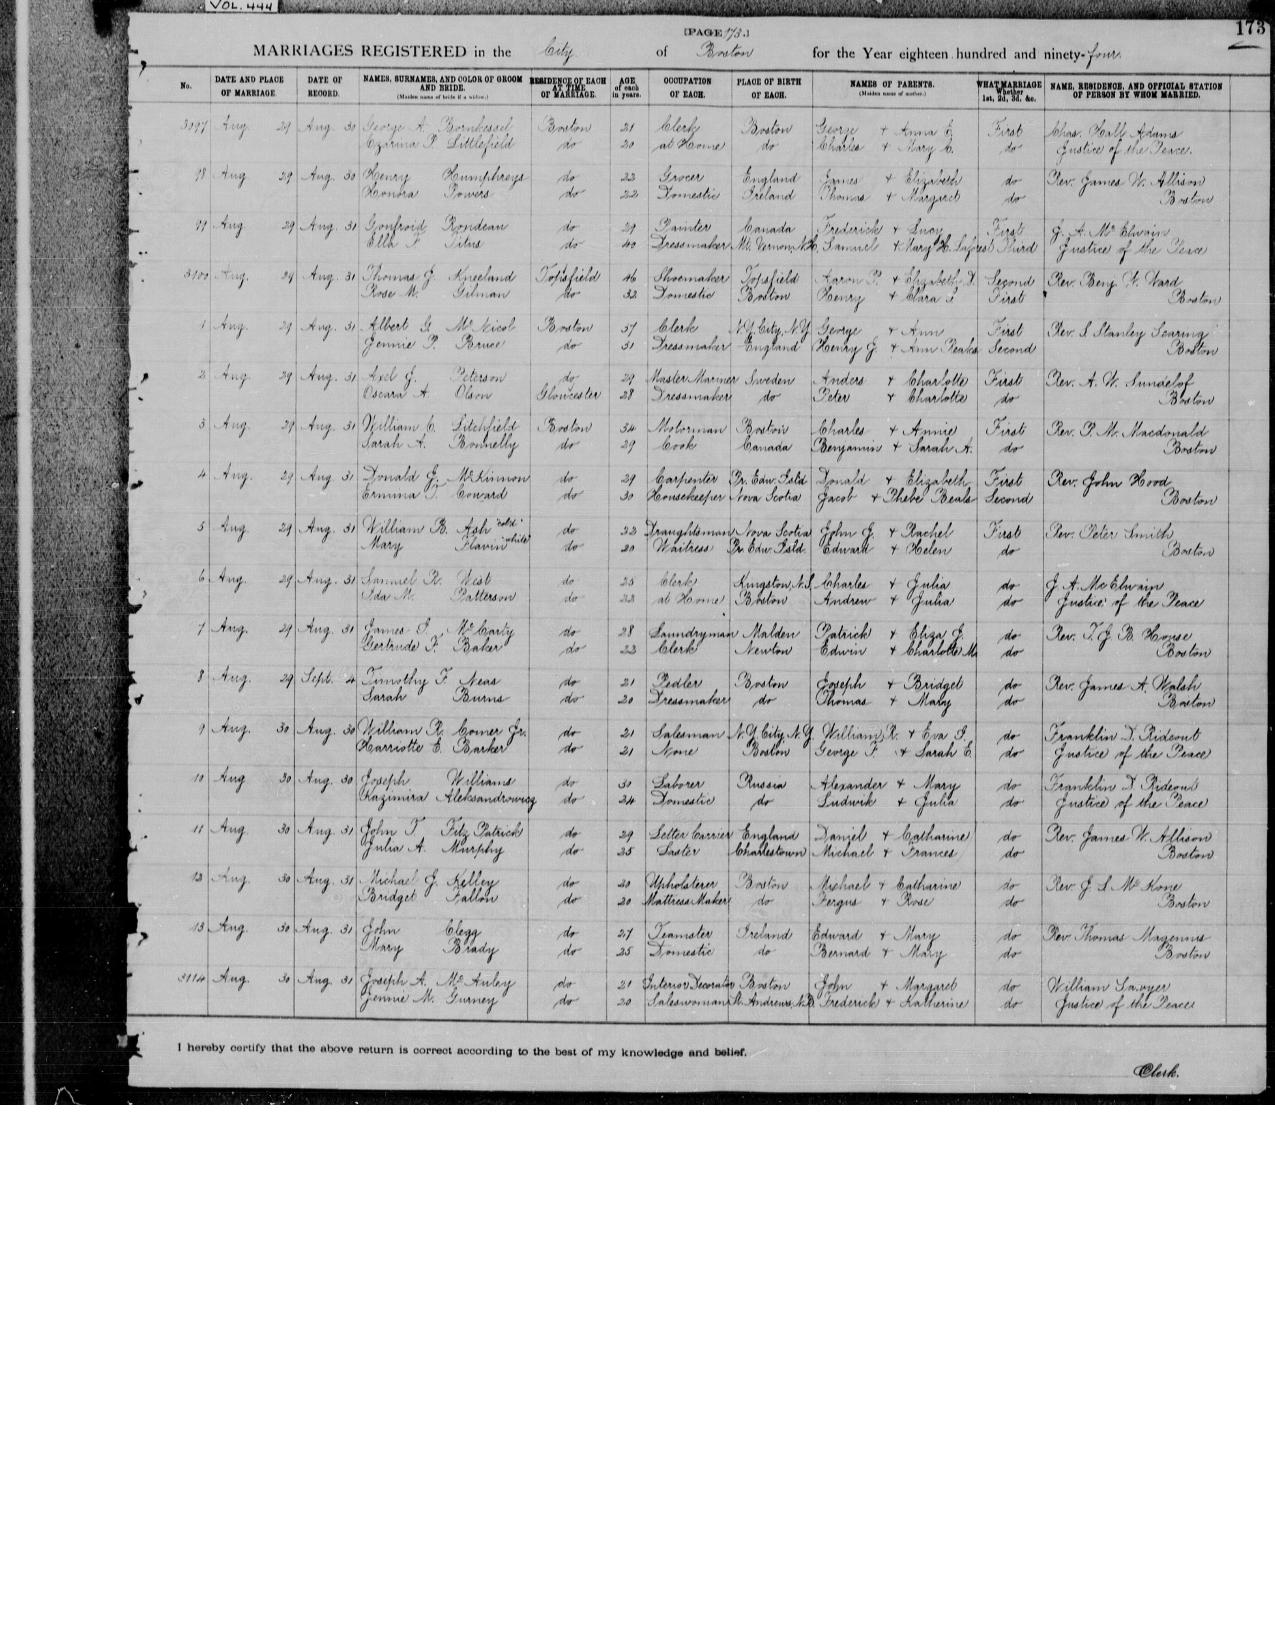 VOL. 444
173
[PAGE 173.]
MARRIAGES REGISTERED in the City of Boston for the Year eighteen hundred and ninety-four.
No. DATE AND PLACE OF MARRIAGE. DATE OF RECORD. NAMES, SURNAMES, AND COLOR OF GROOM AND BRIDE. (Maiden name of bride if a widow.) RESIDENCE OF EACH AT TIME OF MARRIAGE. AGE of each in years. OCCUPATION OF EACH. PLACE OF BIRTH OF EACH. NAMES OF PARENTS. (Maiden name of mother.) WHAT MARRIAGE Whether 1st, 2d, 3d, &c. NAME, RESIDENCE, AND OFFICIAL STATION OF PERSON BY WHOM MARRIED.
3097 Aug. 29 Aug. 30 George A. Bornkessel Boston 21 Clerk Boston George + Anna E. First Chas. Hall Adams
Czarina P. Littlefield do 20 at Home do Charles + Mary C. do Justice of the Peace.
98 Aug 29 Aug. 30 Henry Humphreys do 22 Grocer England James + Elizabeth do Rev. James W. Allison
Honora Powers do 22 Domestic Ireland Thomas + Margaret do Boston
99 Aug. 29 Aug. 31 Gonfroid Rondeau do 29 Painter Canada Frederick + Lucy First J. A. McElwain
Ella F. Titus do 40 Dressmaker Mt. Vernon, N.H. Samuel + Mary H. Third Justice of the Peace
3100 Aug. 29 Aug. 31 Thomas J. Kneeland Topsfield 46 Shoemaker Topsfield Aaron P. + Elizabeth D. Second Rev. Benj. F. Ward
Rose M. Gilman do 32 Domestic Boston Henry + Clara F. First Boston
1 Aug. 29 Aug. 31 Albert G. McNicol Boston 57 Clerk N.Y. City, N.Y. George + Ann First Rev. S. Stanley Searing
Jennie P. Bruce do 51 Dressmaker England Henry J. + Ann Peaks Second Boston
2 Aug 29 Aug. 31 Axel J. Peterson do 29 Master Mariner Sweden Anders + Charlotte First Rev. A. W. Sundelof
Oscara A. Olson Gloucester 28 Dressmaker do Peter + Charlotte do Boston
3 Aug. 29 Aug. 31 William C. Litchfield Boston 34 Motorman Boston Charles + Annie First Rev. P. M. Macdonald
Sarah A. Bonnelly do 29 Cook Canada Benjamin + Sarah A. do Boston
4 Aug. 29 Aug. 31 Donald J. McKinnon do 29 Carpenter Pr. Edw. Isld Donald + Elizabeth First Rev. John Hood
Emma T. Coward do 30 Housekeeper Nova Scotia Jacob + Phebe Beals Second Boston
5 Aug. 29 Aug. 31 William B. Ash "cold" do 22 Draughtsman Nova Scotia John J. + Rachel First Rev. Peter Smith,
Mary Flavin "white" do 20 Waitress Pr. Edw. Isld. Edward + Helen do Boston
6 Aug. 29 Aug. 31 Samuel R. West do 25 Clerk Kingston, N.S. Charles + Julia do J. A. McElwain
Ida M. Patterson do 22 at Home Boston Andrew + Julia do Justice of the Peace
7 Aug. 29 Aug. 31 James S. McCarty do 28 Laundryman Malden Patrick + Eliza J. do Rev. T. J. B. House
Gertrude F. Baker do 23 Clerk Newton Edwin + Charlotte M. do Boston
8 Aug. 29 Sept. 4 Timothy F. Neas do 21 Pedler Boston Joseph + Bridget do Rev. James A. Walsh
Sarah Burns do 20 Dressmaker do Thomas + Mary do Boston
9 Aug. 30 Aug. 30 William R. Comer Jr. do 21 Salesman N.Y. City, N.Y. William R. + Eva S. do Franklin D. Rideout
Harriotte E. Barker do 21 None Boston George F. + Sarah E. do Justice of the Peace
10 Aug 30 Aug. 30 Joseph Williams do 30 Laborer Russia Alexander + Mary do Franklin D. Rideout
Kazimira Aleksandrowicz do 24 Domestic do Ludwik + Julia do Justice of the Peace
11 Aug. 30 Aug. 31 John T. Fitz Patrick do 29 Letter Carrier England Daniel + Catharine do Rev. James W. Allison
Julia A. Murphy do 25 Laster Charlestown Michael + Frances do Boston
12 Aug. 30 Aug. 31 Michael J. Kelley do 20 Upholsterer Boston Michael + Catharine do Rev. J. S. McKone
Bridget Fallon do 20 Mattress Maker do Fergus + Rose do Boston
13 Aug. 30 Aug. 31 John Clegg do 27 Teamster Ireland Edward + Mary do Rev. Thomas Magennis
Mary Brady do 25 Domestic do Bernard + Mary do Boston
3114 Aug. 30 Aug. 31 Joseph A. McAuley do 21 Interior Decorator Boston John + Margaret do William Sawyer
Jennie M. Gurney do 20 Saleswoman St. Andrews, N.B. Frederick + Katherine do Justice of the Peace
I hereby certify that the above return is correct according to the best of my knowledge and belief.
Clerk.